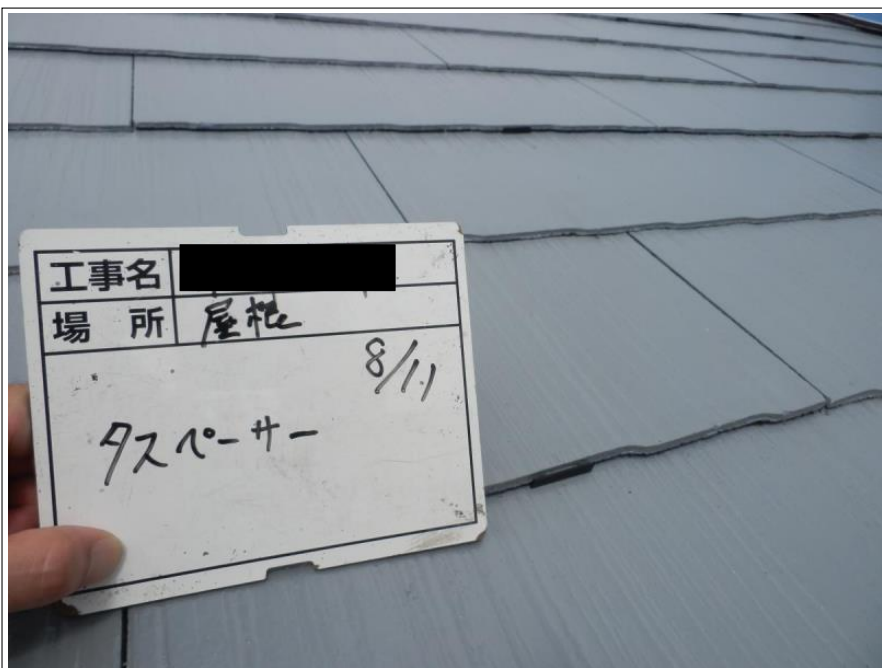 工事名
場 所 屋根
8/11
タスペーサー